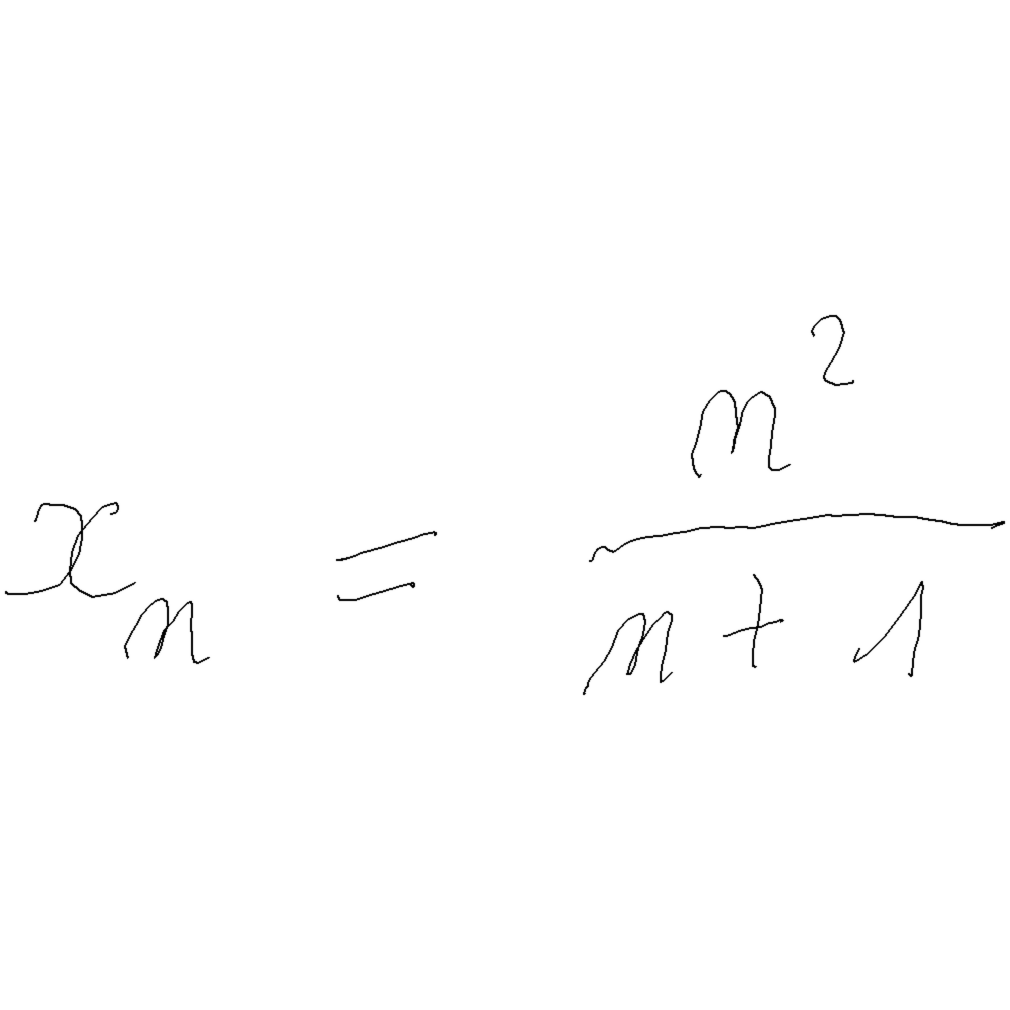 x_n = \frac{n^2}{n+1}